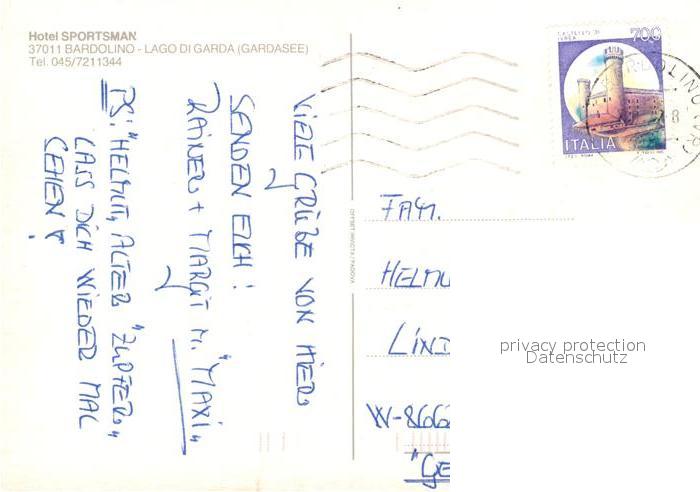 Hotel SPORTSMAN
37011 BARDOLINO - LAGO DI GARDA (GARDASEE)
Tel. 045/7211344
VIELE GRÜßE VON HIER
SENDEN EUCH!
RAINER + MARGIT M. "MAXI"
PS: "HELMUT, ALTER "ZUPFER"
LASS DICH WIEDER MAL
SEHEN!
CASTELLO DI
IVREA
700
ITALIA
FAM.
HELMU
LIND
W-8668
"GE
privacy protection
Datenschutz